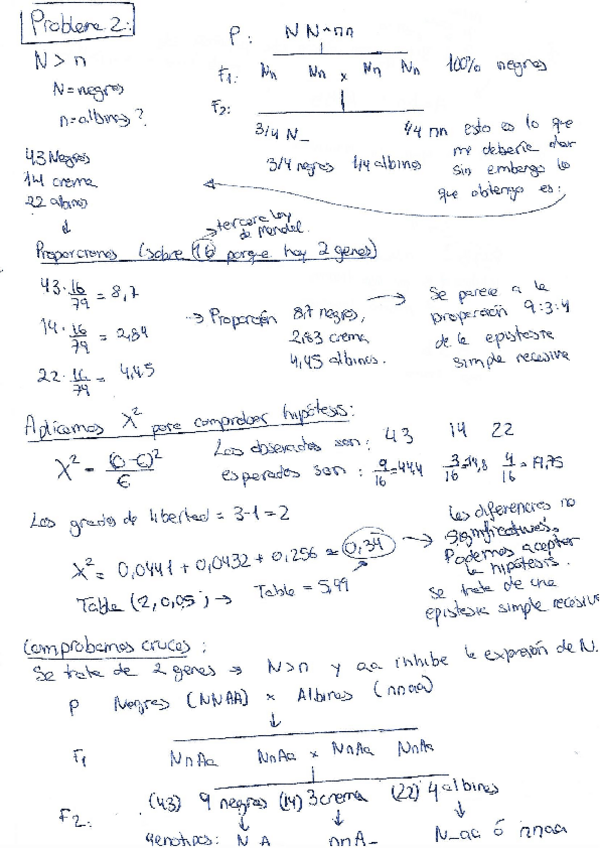 Problema 2:
N > n
N = negros
n = albinos?
43 Negros
14 crema
22 albinos
P: NN x nn
F1: Nn Nn x Nn Nn 100% negros
F2:
3/4 N_ 1/4 nn esto es lo que
me debería dar
3/4 negros 1/4 albinos sin embargo lo
que obtengo es:
tercera ley
de Mendel.
Proporciones (sobre 16 porque hay 2 genes)
43 · 16/79 = 8,7
14 · 16/79 = 2,84
22 · 16/79 = 4,45
→ Proporción 8,7 negros,
2,83 crema
4,45 albinos.
Se parece a la
proporción 9:3:4
de la epistasia
simple recesiva
Aplicamos X² para comprobar hipótesis:
X² = (o-e)²/e
Los observados son: 43 14 22
esperados son: 9/16 = 44,4 3/16 = 14,8 4/16 = 19,75
Los grados de libertad = 3-1 = 2
X² = 0,0441 + 0,0432 + 0,256 = 0,34
Tabla (2, 0,05) → Tabla = 5,99
las diferencias no
significativas.
Podemos aceptar
la hipótesis.
Se trata de una
epistasia simple recesiva
Comprobamos cruces:
Se trata de 2 genes → N>n y aa inhibe la expresión de N.
P Negros (NNAA) x Albinos (nnaa)
F1 NnAa NnAa x NnAa NnAa
F2: (43) 9 negros (14) 3 crema (22) 4 albinos
genotipos: N_A_ nnA_ N_aa ó nnaa